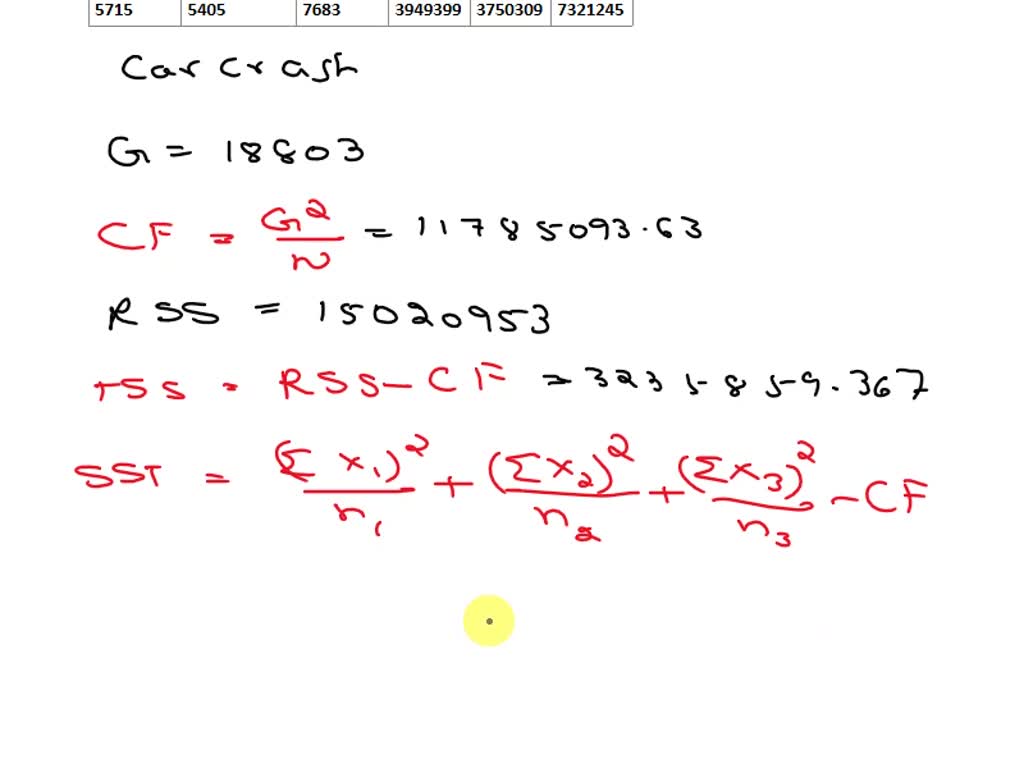 5715 5405 7683 3949399 3750309 7321245
Car crash
G = 18803
CF = G²/n = 11785093.63
RSS = 15020953
TSS = RSS - CF = 3235859.367
SST = (Σx₁)²/n₁ + (Σx₂)²/n₂ + (Σx₃)²/n₃ - CF